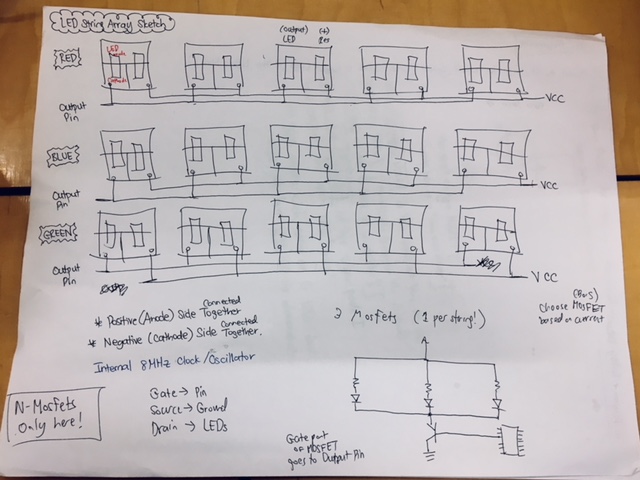 LED String Array Sketch
RED
LED
Cathode
(output)
LED
(+)
Output
Pin
VCC
BLUE
Output
Pin
VCC
GREEN
Output
Pin
VCC
* Postive (Anode) Side Connected Together
* Negative (Cathode) Side Connected Together.
Internal 8MHz Clock/Oscillator
Gate → Pin
Source → Ground
Drain → LEDs
N-Mosfets
Only here!
Mosfets (1 per string!)
Choose MOSFET
based on current
A
Gate part
of MOSFET
goes to Output Pin